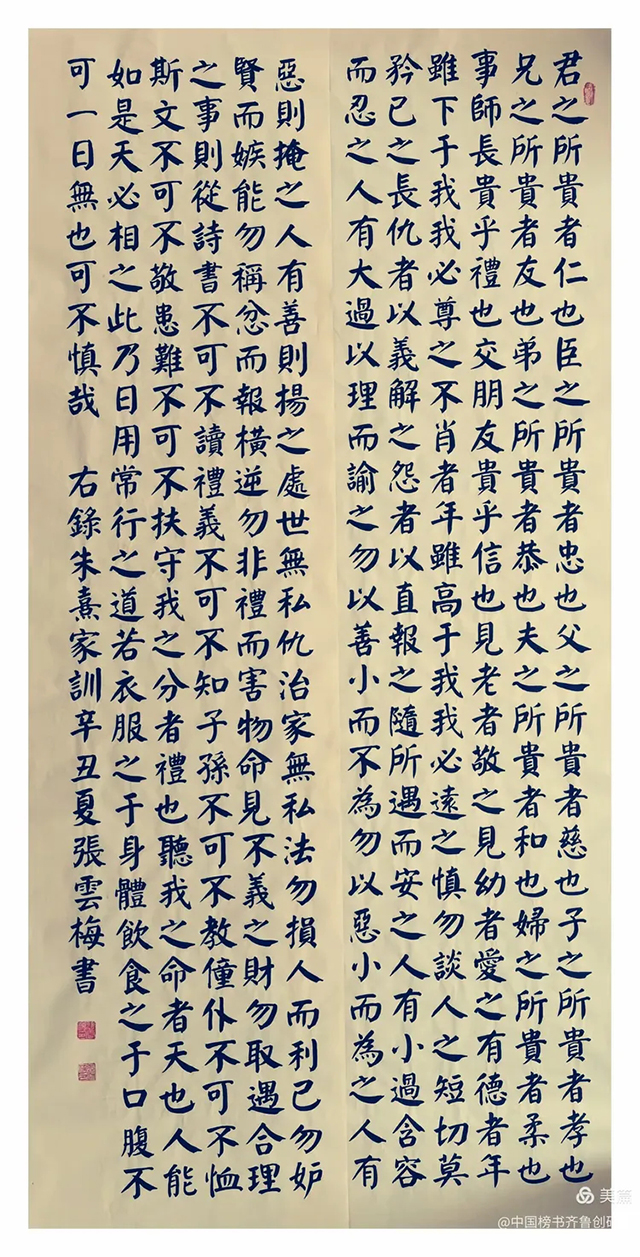 君之所貴者仁也臣之所貴者忠也父之所貴者慈也子之所貴者孝也
兄之所貴者友也弟之所貴者恭也夫之所貴者和也婦之所貴者柔也
事師長貴乎禮也交朋友貴乎信也見老者敬之見幼者愛之有德者年
雖下于我我必尊之不肖者年雖高于我我必遠之慎勿談人之短切莫
矜己之長仇者以義解之怨者以直報之隨所遇而安之人有小過含容
而忍之人有大過以理而諭之勿以善小而不為勿以惡小而為之人有
惡則掩之人有善則揚之處世無私仇治家無私法勿損人而利己勿妒
賢而嫉能勿稱忿而報橫逆勿非禮而害物命見不義之財勿取遇合理
之事則從詩書不可不讀禮義不可不知子孫不可不教僮仆不可不恤
斯文不可不敬患難不可不扶守我之分者禮也聽我之命者天也人能
如是天必相之此乃日用常行之道若衣服之于身體飲食之于口腹不
可一日無也可不慎哉 右錄朱熹家訓辛丑夏張雲梅書
美篇
@中国榜书齐鲁创研